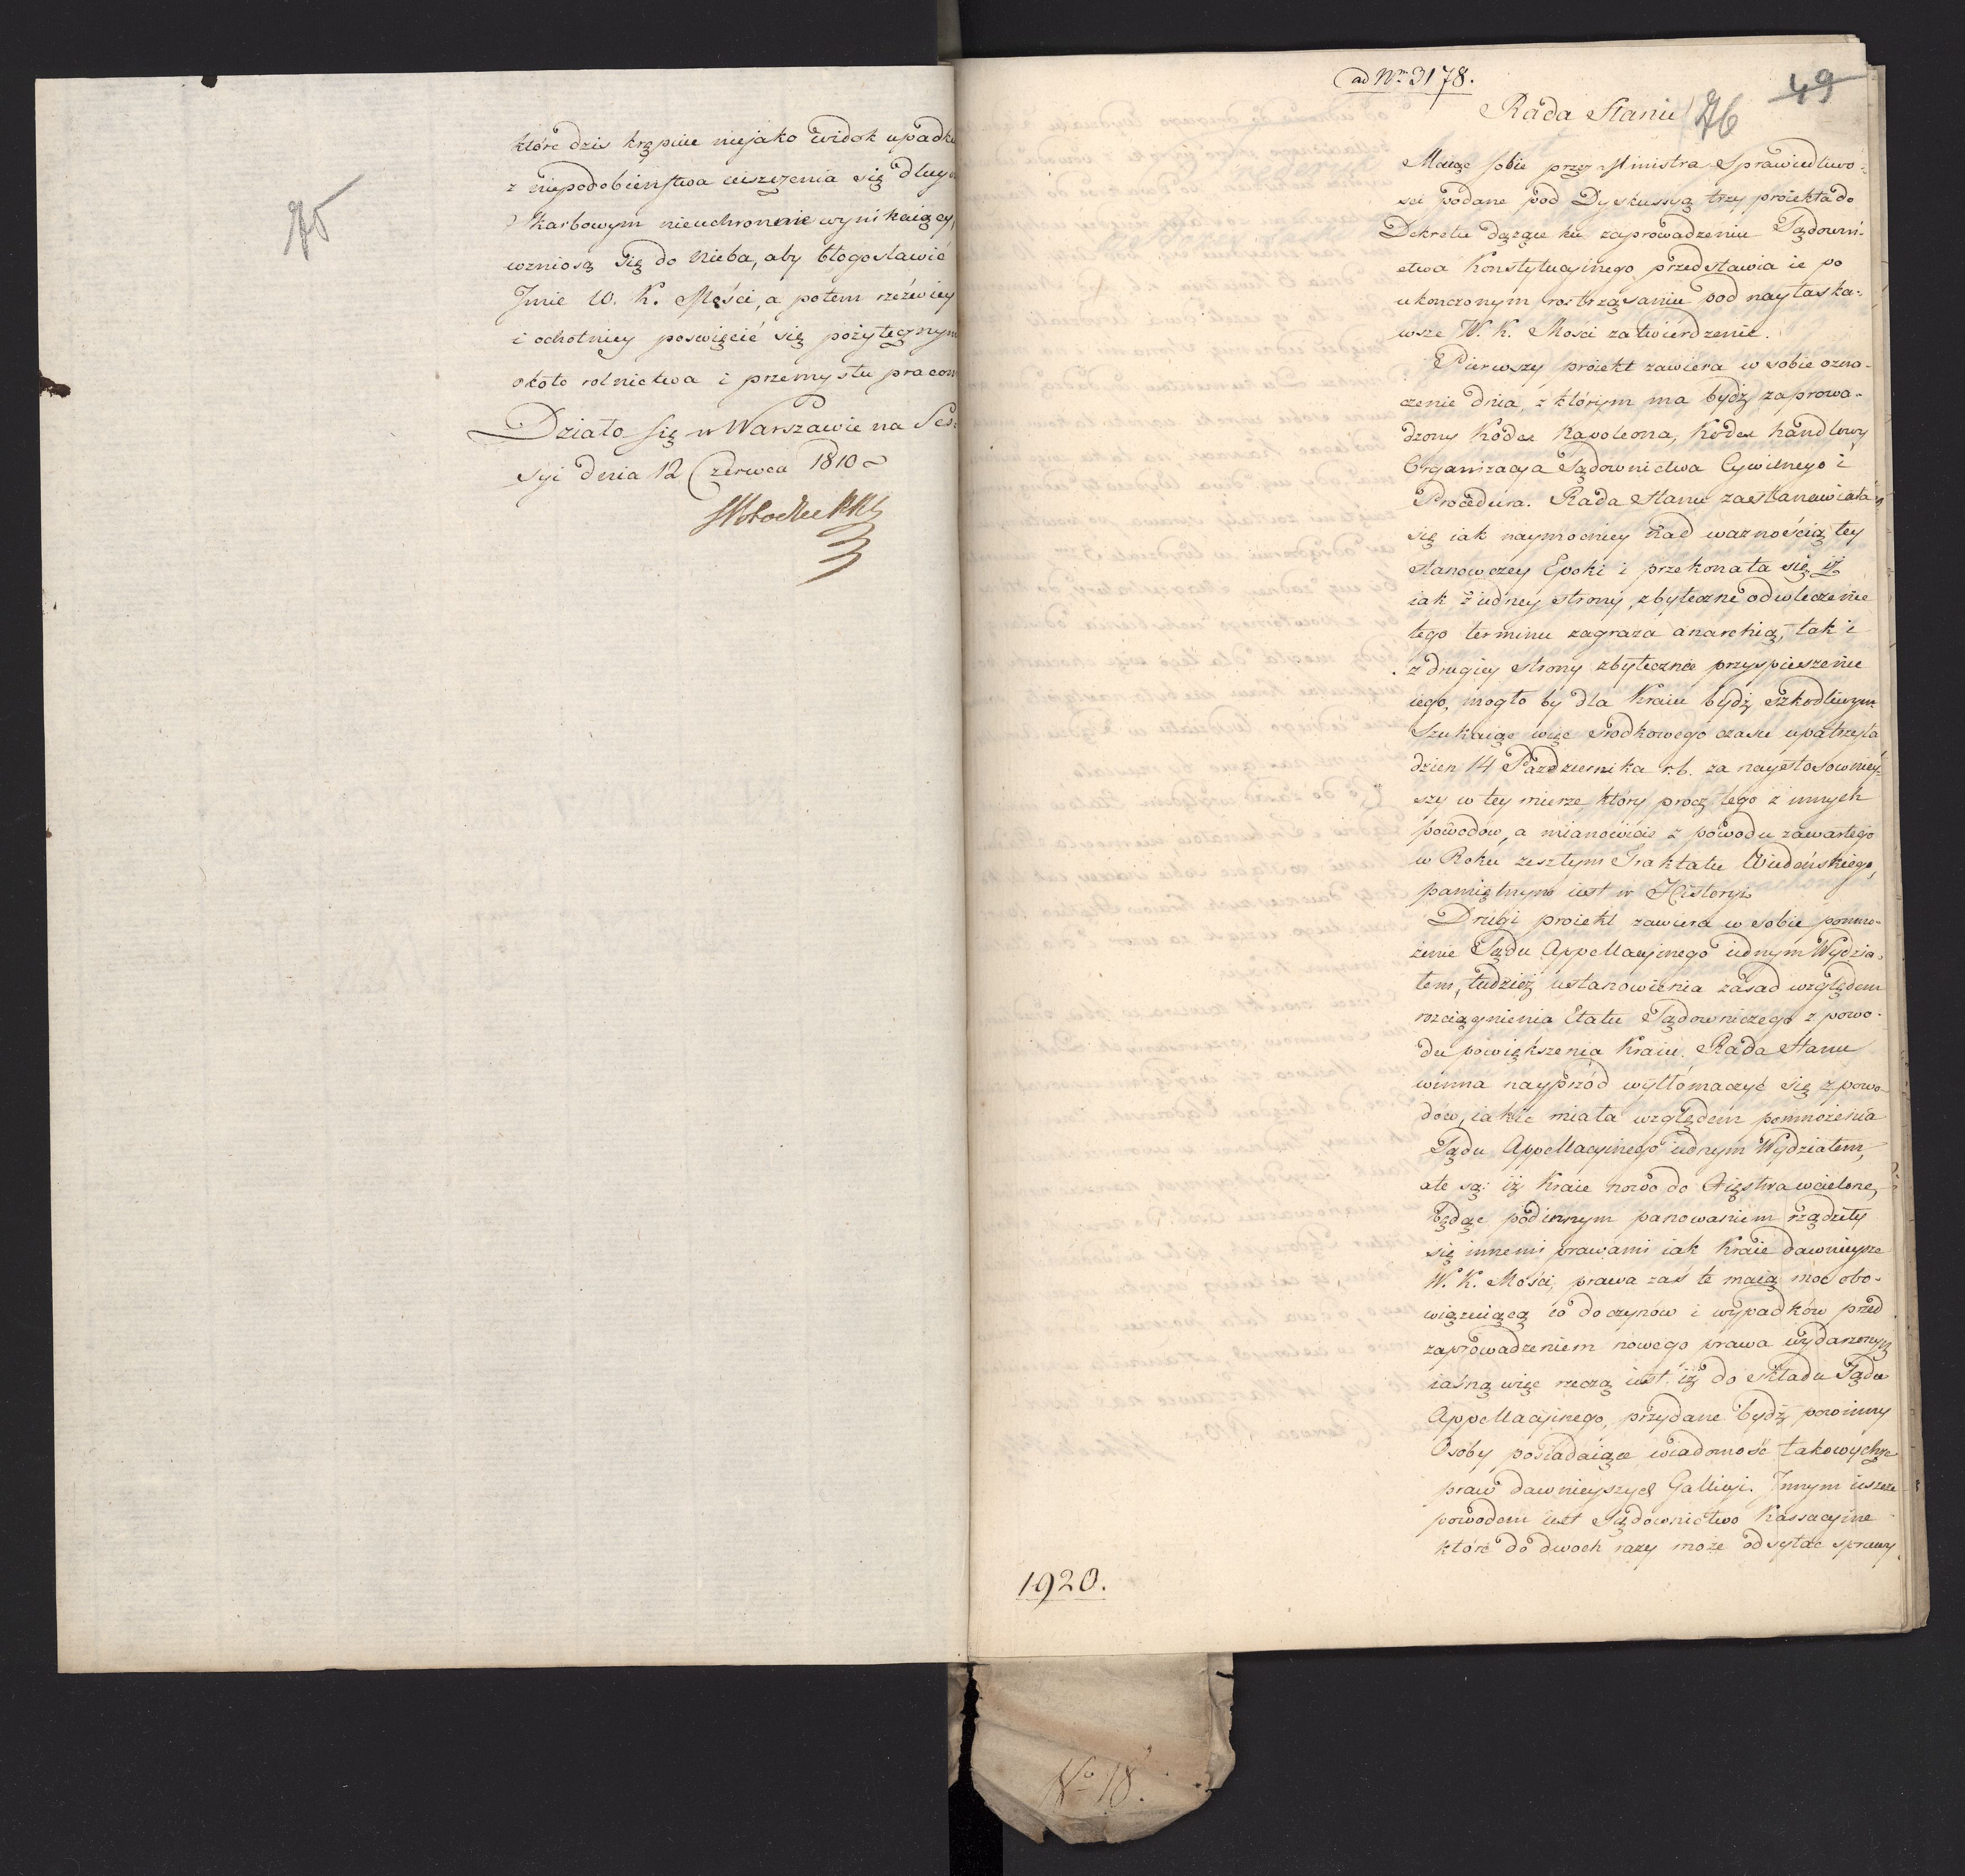 75
które dzis krępuie niejako widok upadku
z niepodobieństwa uiszczenia się długom
Skarbowym nieuchronnie wynikaiący,
wzniosą się do Nieba, aby błogosławić
Jmie W. K. Mości, a potem rzeźwiey
i ochotniey poswięcić się pożytecznym
około rolnictwa i przemysłu pracom
Działo się w Warszawie na Ses=
syi dnia 12 Czerwca 1810
ad Nr 3178.
49
76
Rada Stanu
Maiąc sobie przez Ministra Sprawiedliwo=
sci podane pod Dyskussyą trzy proiekta do
Dekretu dążące ku zaprowadzeniu Sądowni=
ctwa Konstytucyinego przedstawia ie po
ukonczonym rostrząsaniu pod nayłaska=
wsze W. K. Mości zatwierdzenie.
Pierwszy proiekt zawiera w sobie ozna=
czenie dnia, z którym ma bydź zaprowa=
dzony Kodex Napoleona, Kodex handlowy
Organizacya Sądownictwa Cywilnego i
Procedura. Rada Stanu zastanawiała
się iak naymocniey nad ważnością tey
stanowczey Epoki i przekonała się iż
iak z iedney strony, zbyteczne odwleczenie
tego terminu zagraża anarchią, tak i
z drugiey strony zbyteczne przyspieszenie
iego, mogło by dla Kraiu bydź szkodliwym
Szukaiąc więc srodkowego czasu upatrzyła
dzien 14 Pazdziernika r. b. za naystosowniey=
szy w tey mierze, który procz tego z innych
powodów, a mianowicie z powodu zawartego
w Roku zeszłym Traktatu Wiedeńskiego,
pamiętnym iest w Historyi.
Drugi proiekt zawiera w sobie pomno=
żenie Sądu Appellacyinego iednym Wydzia=
łem, tudzież ustanowienia zasad względem
rozciągnienia Etatu Sądowniczego z powo=
du powiększenia Kraiu. Rada Stanu
winna nayprzód wytłómaczyć się z powo=
dów, iakie miała względem pomnożenia
Sądu Appellacyinego iednym Wydziałem,
ate są: iż Kraie nowo do Xięstwa wcielone,
będąc pod innym panowaniem rządziły
się innemi prawami iak Kraie dawnieysze
W. K. Mości, prawa zaś te maią moc obo=
wiązuiącą co do czynów i wypadków przed
zaprowadzeniem nowego prawa wydarzonych
iasną więc rzeczą iest, iż do składu Sądu
Appellacyinego, przydane bydź powinny
Osoby posiadaiące wiadomość takowychże
praw dawnieyszych Gallicyi. Innym ieszcze
powodem iest Sądownictwo Kassacyine
które do dwoch razy może odsyłać sprawy
1920.
No 18.